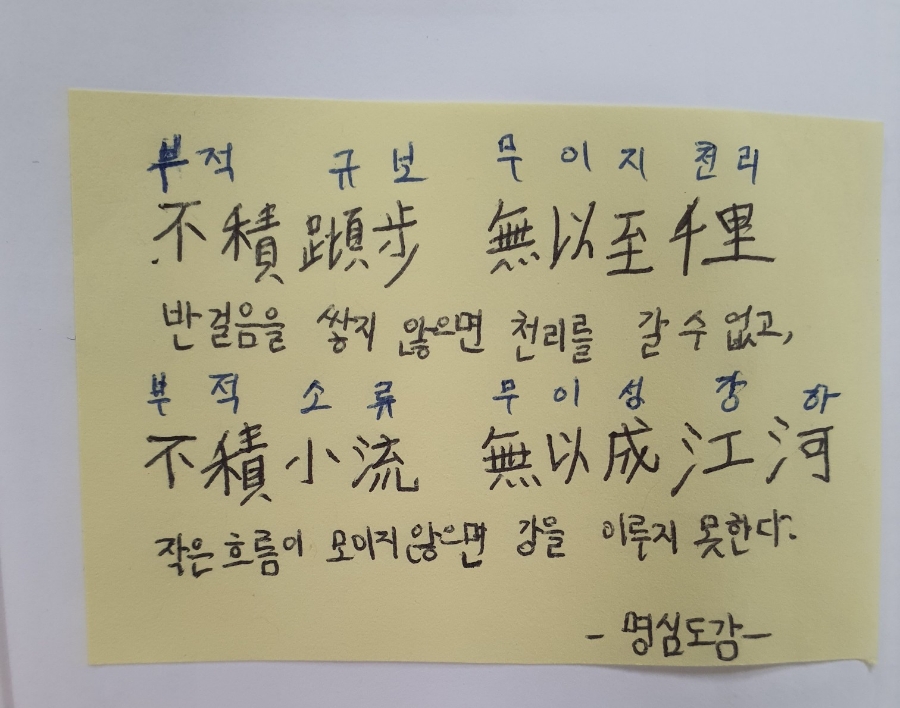 부적 규보 무이지 천리
不積蹞步 無以至千里
반걸음을 쌓지 않으면 천리를 갈 수 없고,
부적 소류 무이성 강 하
不積小流 無以成江河
작은 흐름이 모이지 않으면 강을 이루지 못한다.
- 명심도감 -